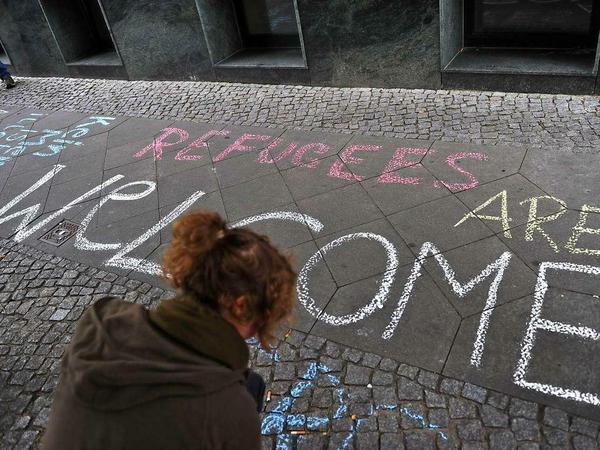 REFUGEES ARE
WELCOME
Kein